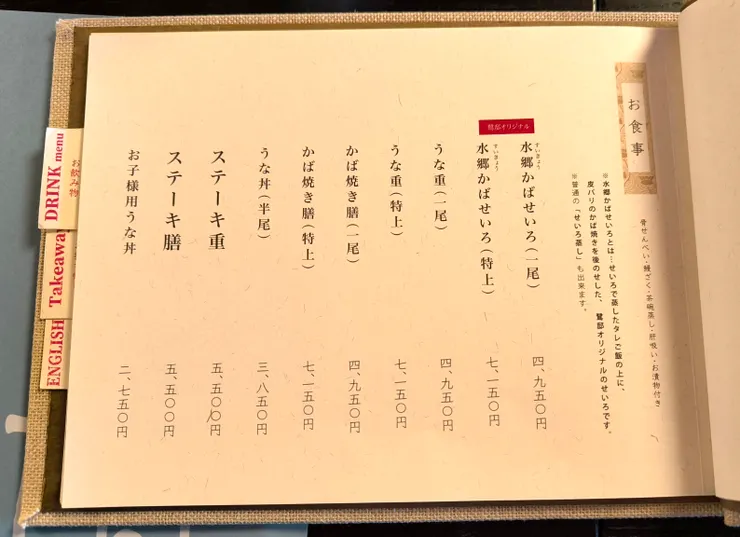 お食事
骨せんべい・鰻ざく・茶碗蒸し・肝吸い・お漬物付き
※水郷かばせいろとは…せいろで蒸したタレご飯の上に、
皮パリのかば焼きを後のせした、鷺邸オリジナルのせいろです。
※普通の「せいろ蒸し」も出来ます。
鷺邸オリジナル
水郷かばせいろ(一尾) 四、九五〇円
すいきょう
水郷かばせいろ(特上) 七、一五〇円
すいきょう
うな重(一尾) 四、九五〇円
うな重(特上) 七、一五〇円
かば焼き膳(一尾) 四、九五〇円
かば焼き膳(特上) 七、一五〇円
うな丼(半尾) 三、八五〇円
ステーキ重 五、五〇〇円
ステーキ膳 五、五〇〇円
お子様用うな丼 二、七五〇円
お飲み物
DRINK menu
Takeaway
ENGLISH